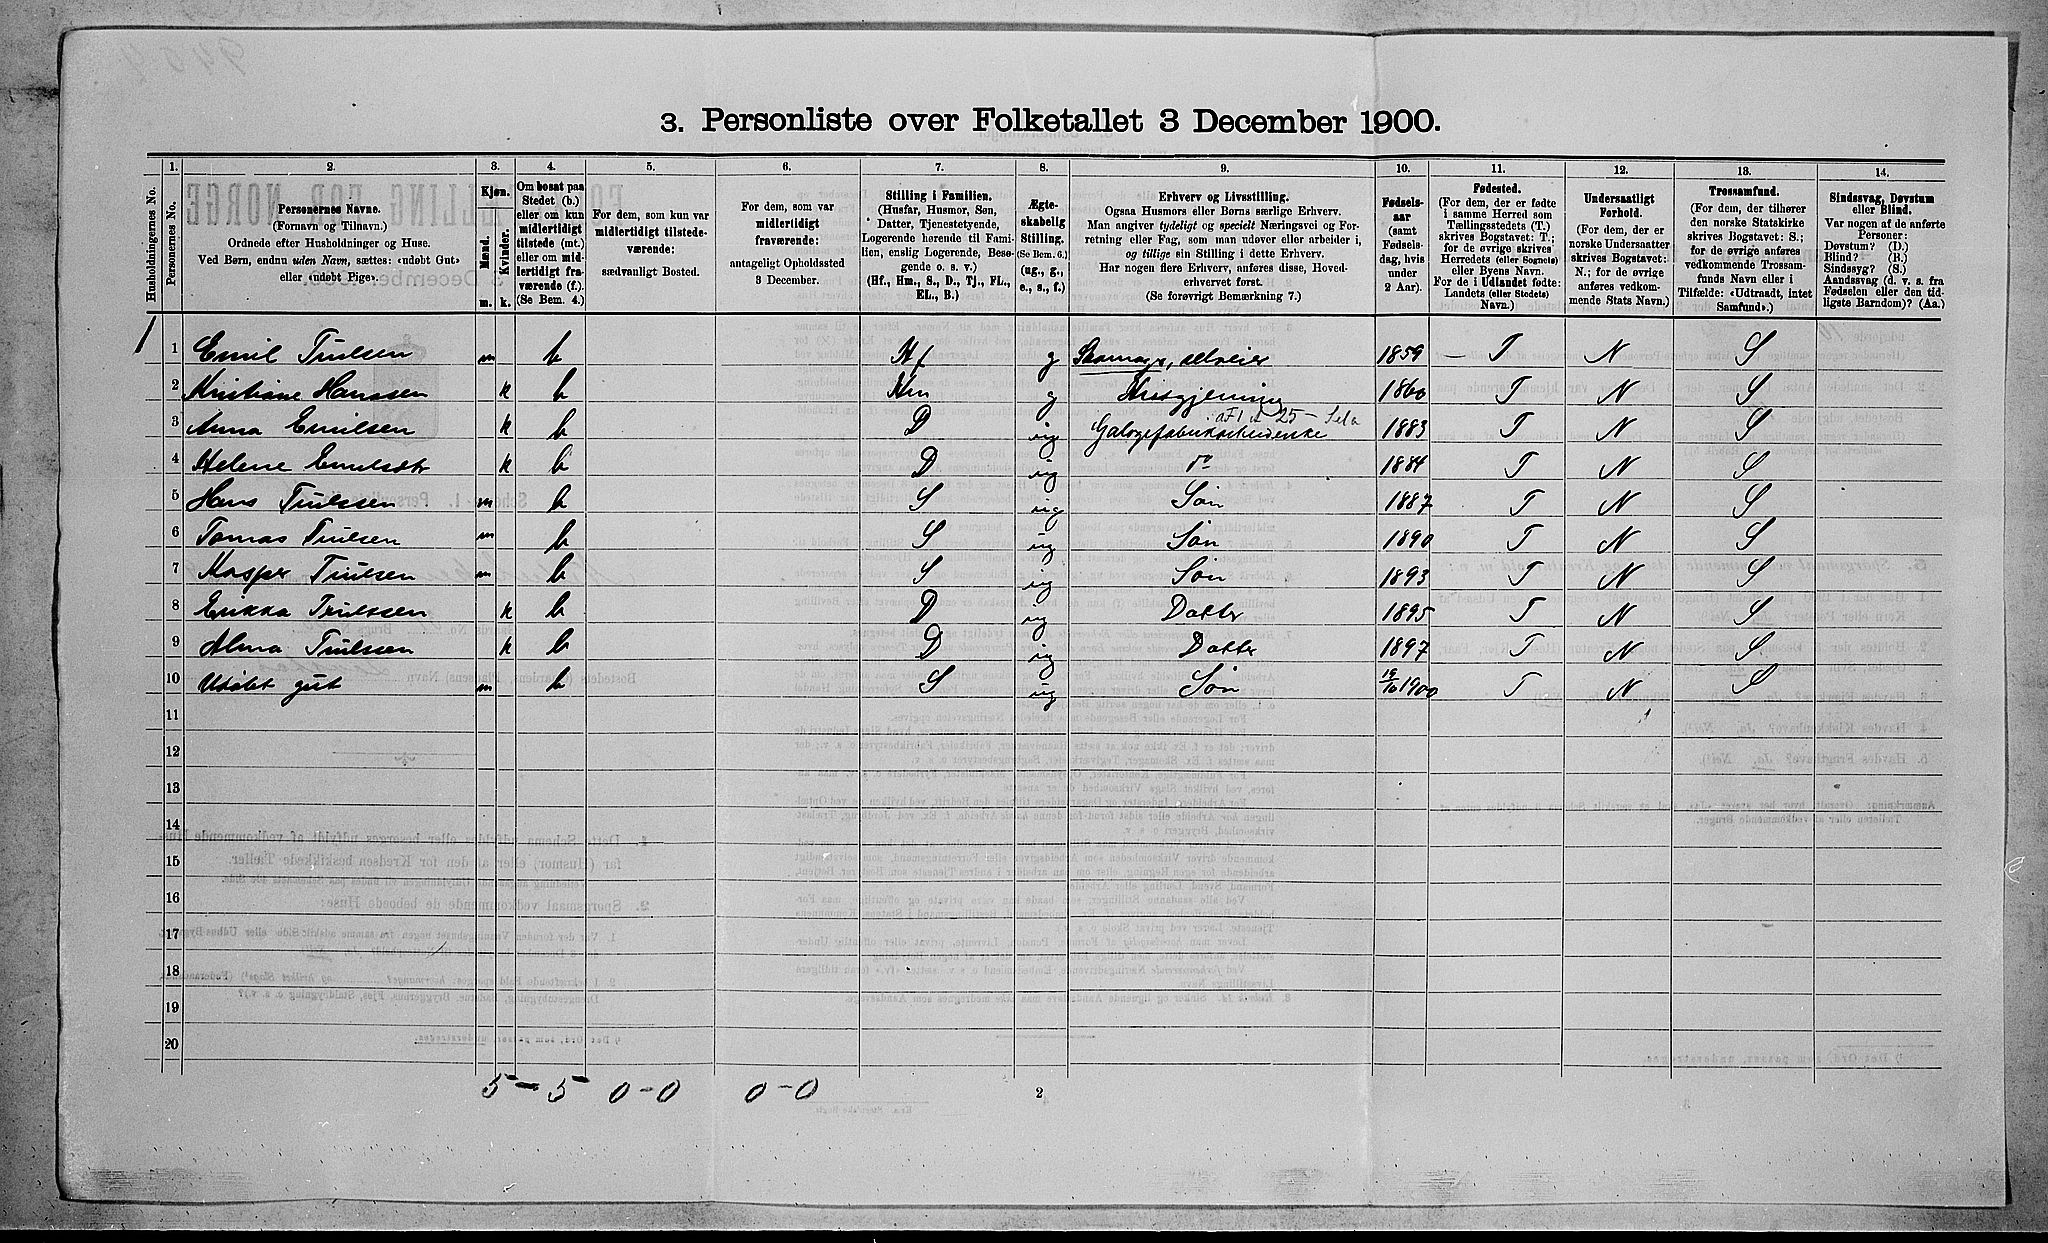 3. Personliste over Folketallet 3 December 1900.
1. 2. 3. 4. 5. 6. 7. 8. 9. 10. 11. 12. 13. 14.
Husholdningernes No.
Personernes No.
Personernes Navne.
(Fornavn og Tilnavn.)
Ordnede efter Husholdninger og Huse.
Ved Børn, endnu uden Navn, sættes: «udøbt Gut»
eller «udøbt Pige».
Kjøn.
Mænd.
Kvinder.
m. k.
Om bosat paa
Stedet (b.)
eller om kun
midlertidigt
tilstede (mt.)
eller om mid-
lertidigt fra-
værende (f.).
(Se Bem. 4.)
For dem, som kun var
midlertidigt tilstede-
værende:
sædvanligt Bosted.
For dem, som var
midlertidigt
fraværende:
antageligt Opholdssted
3 December.
Stilling i Familien.
(Husfar, Husmor, Søn,
Datter, Tjenestetyende,
Logerende hørende til Fami-
lien, enslig Logerende, Besø-
gende o. s. v.)
(Hf., Hm., S., D., Tj., FL.,
EL., B.)
Ægte-
skabelig
Stilling.
(Se Bem. 6.)
(ug., g.,
e., s., f.)
Erhverv og Livsstilling.
Ogsaa Husmors eller Børns særlige Erhverv.
Man angiver tydeligt og specielt Næringsvei og For-
retning eller Fag, som man udøver eller arbeider i,
og tillige sin Stilling i dette Erhverv.
Har nogen flere Erhverv, anføres disse, Hoved-
erhvervet først.
(Se forøvrigt Bemærkning 7.)
Fødsels-
aar
(samt
Fødsels-
dag, hvis
under
2 Aar).
Fødested.
(For dem, der er fødte
i samme Herred som
Tællingsstedets (T.)
skrives Bogstavet: T.;
for de øvrige skrives
Herredets (eller Sognets)
eller Byens Navn.
For de i Udlandet fødte:
Landets (eller Stedets)
Navn.)
Undersaatligt
Forhold.
(For dem, der er
norske Undersaatter
skrives Bogstavet:
N.; for de øvrige
anføres vedkom-
mende Stats Navn.)
Trossamfund.
(For dem, der tilhører
den norske Statskirke
skrives Bogstavet: S.;
for de øvrige anføres
vedkommende Trossam-
funds Navn eller i
Tilfælde: «Udtraadt, intet
Samfund».)
Sindssvag, Døvstum
eller Blind.
Var nogen af de anførte
Personer:
Døvstum? (D.)
Blind? (B.)
Sindssyg? (S.)
Aandssvag (d. v. s. fra
Fødselen eller den tid-
ligste Barndom)? (Aa.)
1 1 Emil Trulsen m b Hf g Skomager, selveier 1859 T N S
2 Kristiane Hanssen k b Hm g Husgjerning 1860 T N S
3 Anna Emilsen k b D ug Galogefabrikarbeiderske 1883 T N S
4 Helene Emilsdtr k b D ug do 1884 T N S
5 Hans Trulssen m b S ug Søn 1887 T N S
6 Tomas Trulsen m b S ug Søn 1890 T N S
7 Kasper Trulsen m b S ug Søn 1893 T N S
8 Erikka Trulssen k b D ug Datter 1895 T N S
9 Alma Trulssen k b D ug Datter 1897 T N S
10 Udøbt gut m b S ug Søn 19/10 1900 T N S
11
12
13
14
15
16
17
18
19
20
5 - 5 0 - 0 0 - 0
2